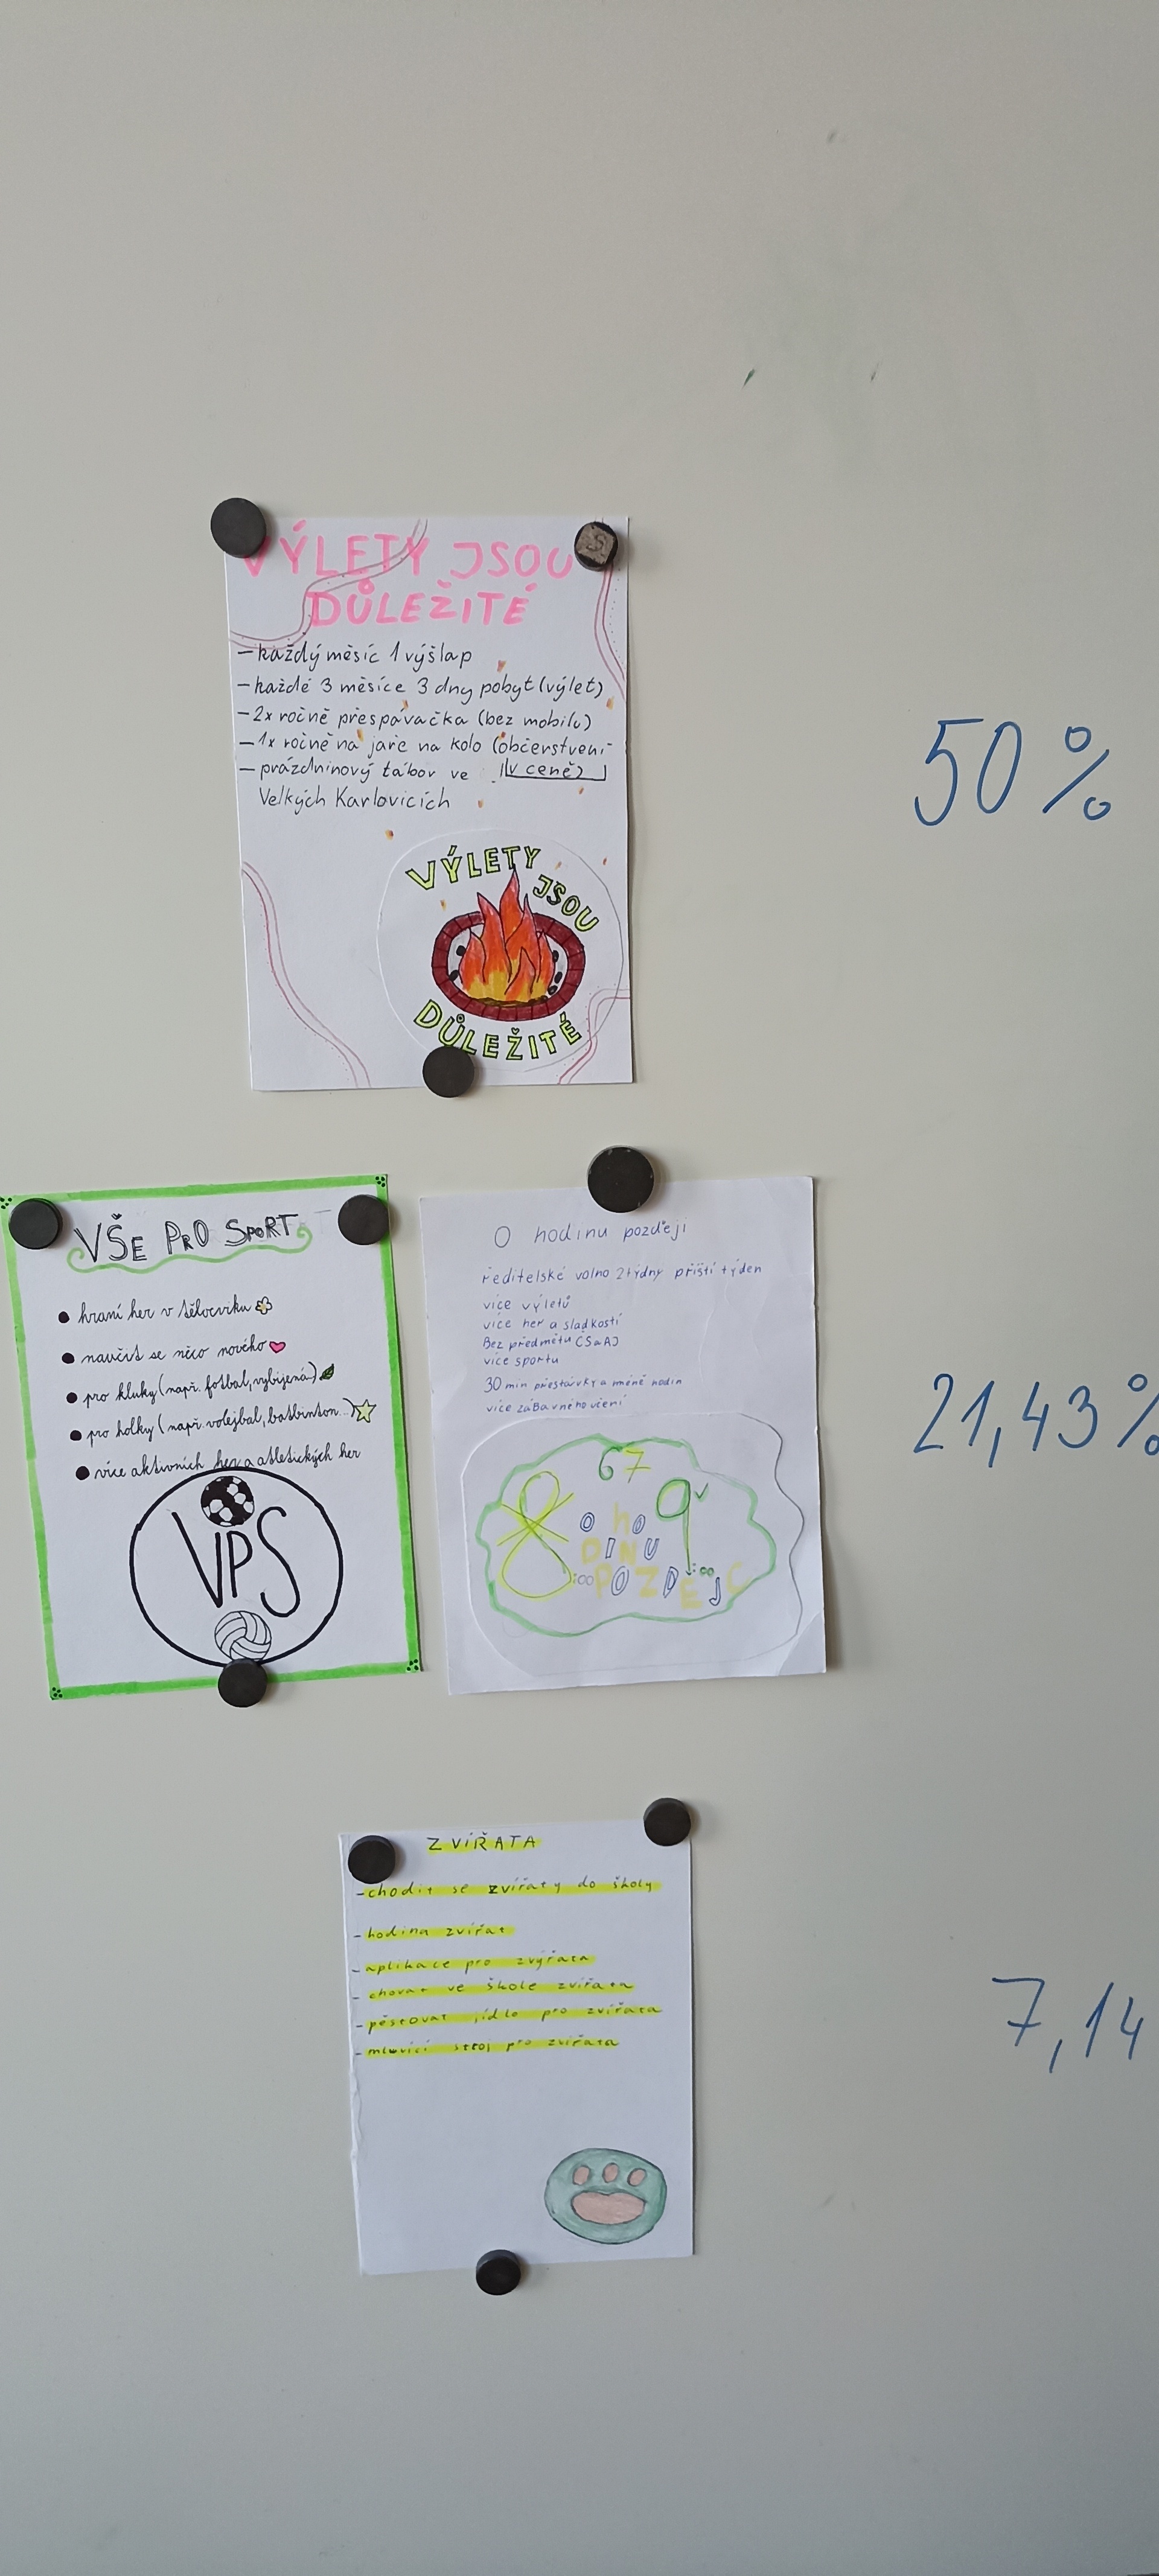 VÝLETY JSOU
DŮLEŽITÉ
– každý měsíc 1 výšlap
– každé 3 měsíce 3 dny pobyt (výlet)
– 2x ročně přespávačka (bez mobilu)
– 1x ročně na jaře na kolo (občerstvení
v ceně)
– prázdninový tábor ve
Velkých Karlovicích
VÝLETY
JSOU
DŮLEŽITÉ
50 %
VŠE PRO SPORT
• hraní her v tělocviku
• naučit se něco nového
• pro kluky (např. fotbal, vybíjená..)
• pro holky (např. volejbal, batbinton..)
• více aktivních her a atletických her
VPS
O hodinu pozdeji
ředitelské volno 2týdny příští týden
více výletů
více her a sladkostí
Bez předmětu ČS a AJ
více sportu
30 min přestávky a méně hodin
více záBavného učení
67
8:00
9:00
O hO
DINU
POZDĚJC
21,43 %
ZVÍŘATA
- chodit se zvířaty do školy
- hodina zvířat
- aplikace pro zvýřata
- chovat ve škole zvířata
- pěstovat jídlo pro zvířata
- mluvící stroj pro zvířata
7,14